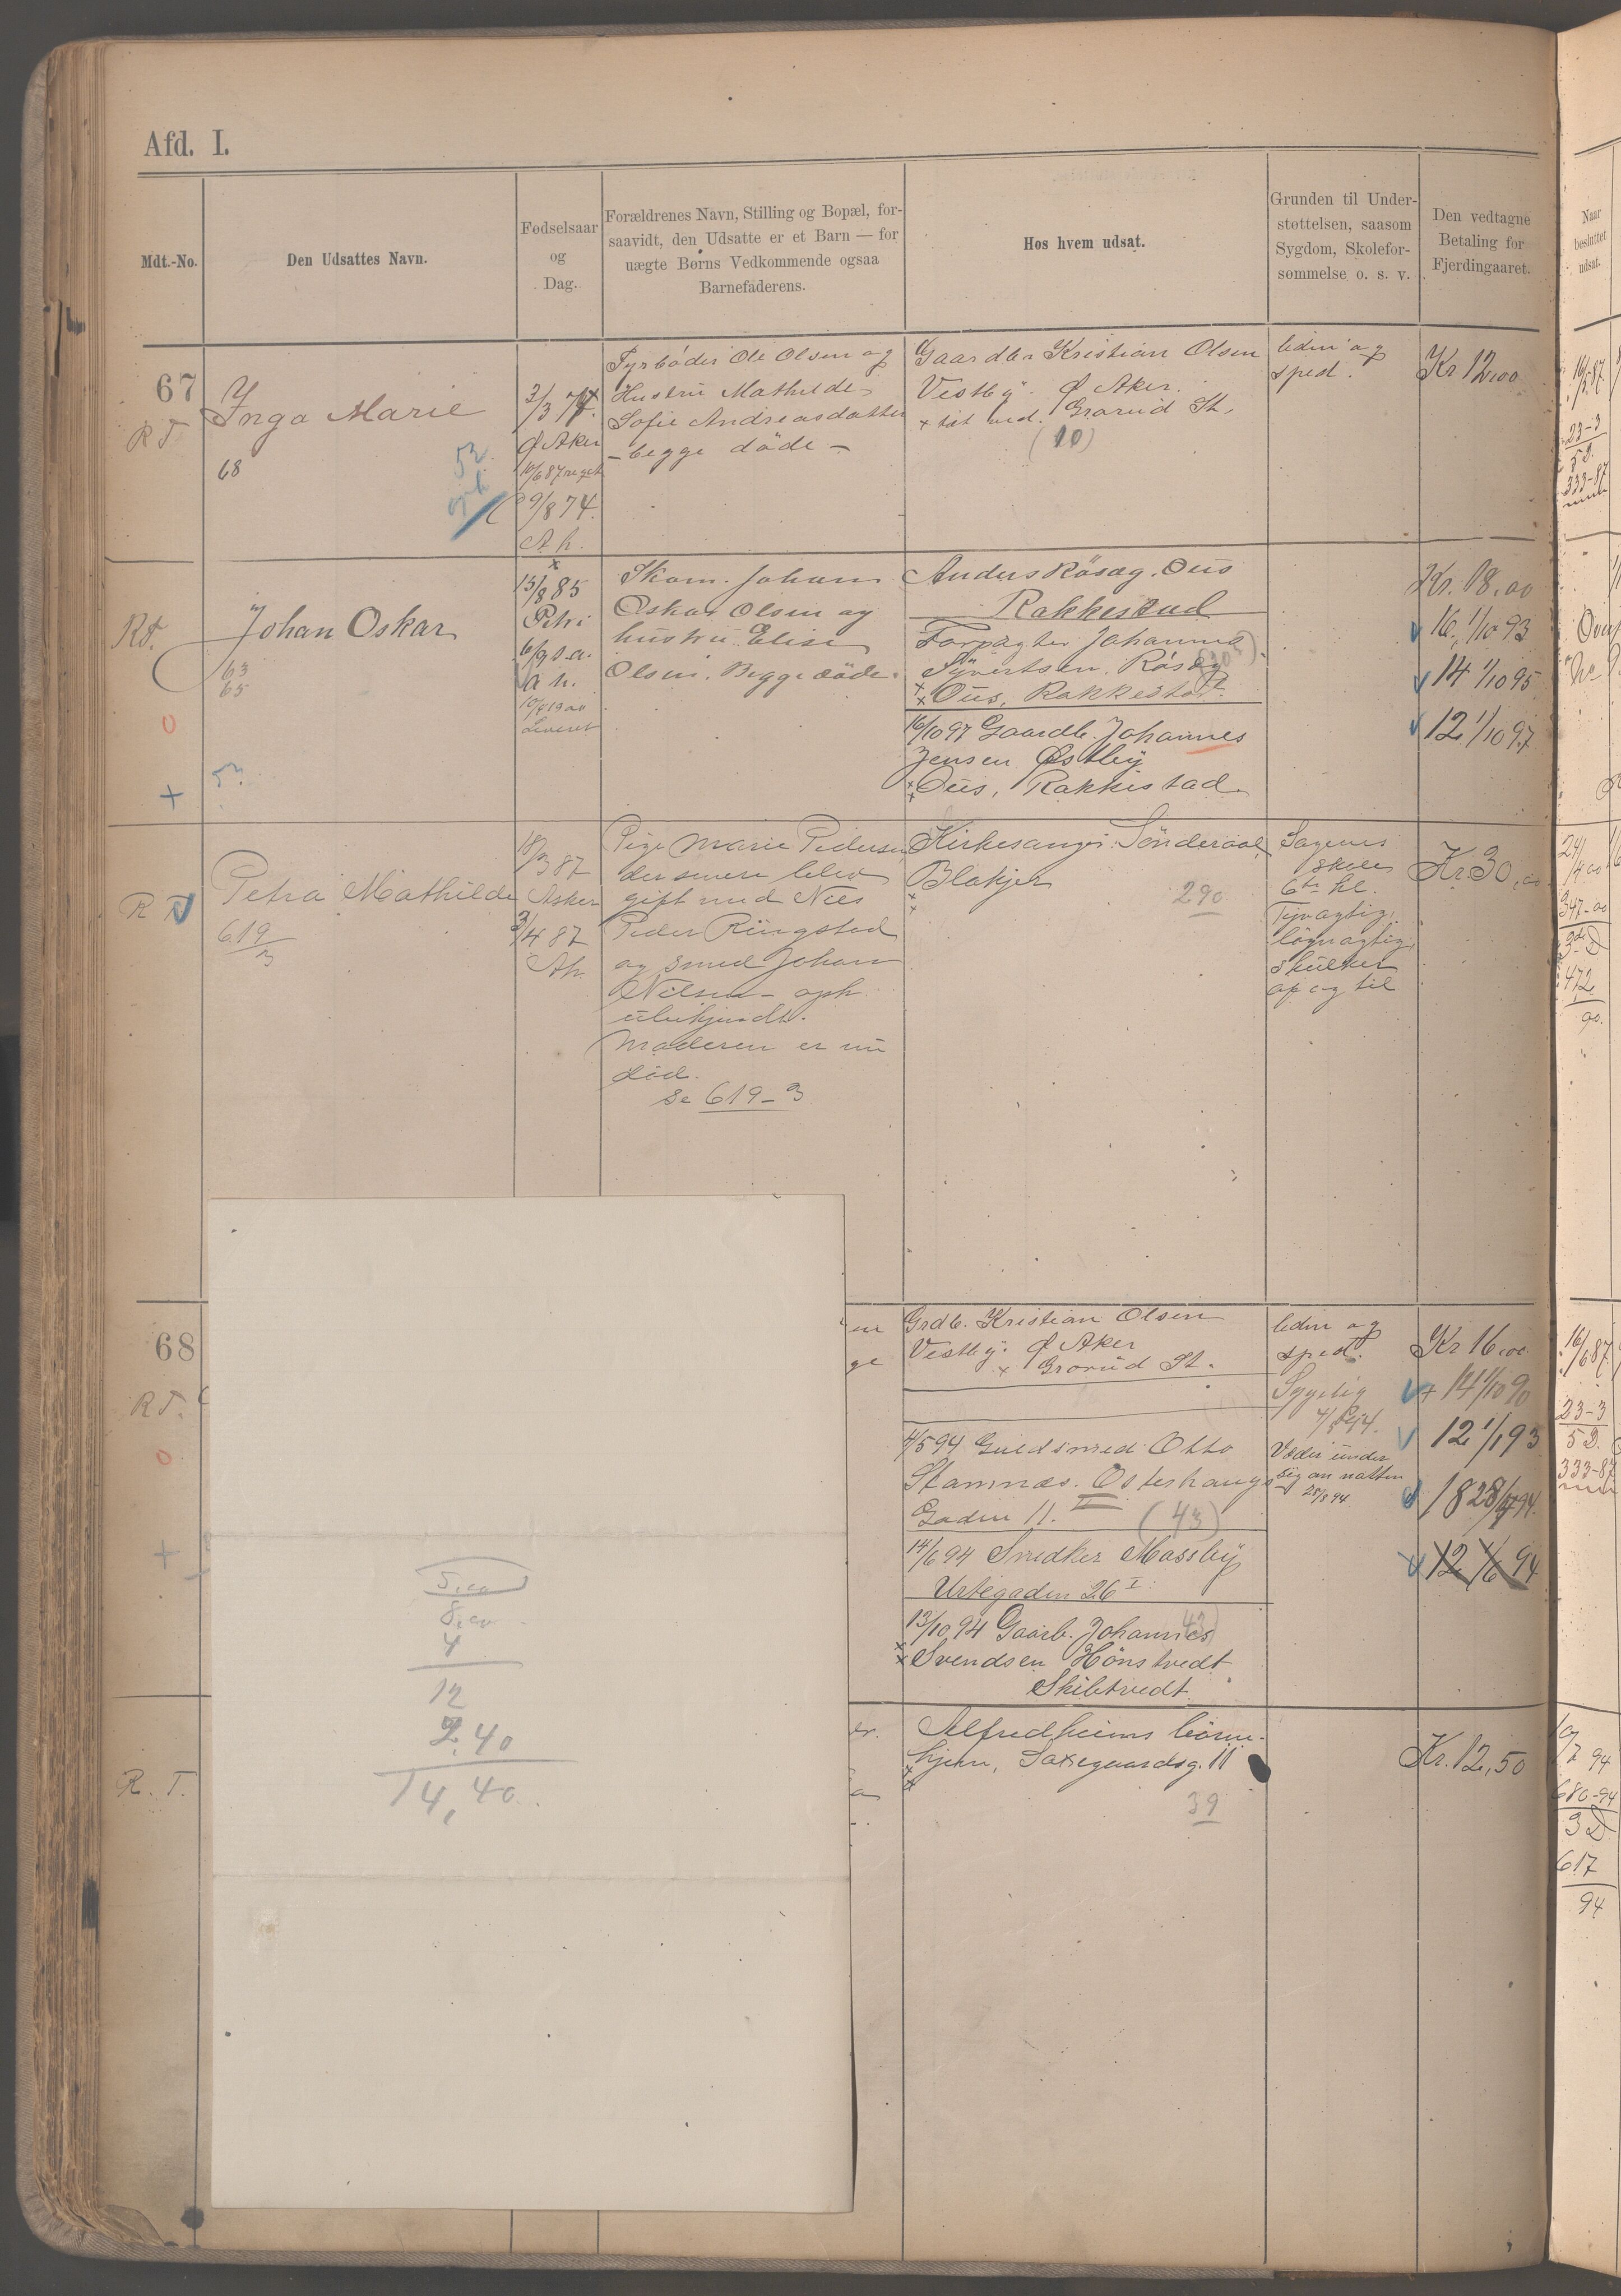 Afd. I.
Mdt.-No.
Den Udsattes Navn.
Fødselsaar
og
Dag.
Forældrenes Navn, Stilling og Bopæl, for-
saavidt, den Udsatte er et Barn — for
uægte Børns Vedkommende ogsaa
Barnefaderens.
Hos hvem udsat.
Grunden til Under-
støttelsen, saasom
Sygdom, Skolefor-
sømmelse o. s. v.
Den vedtagne
Betaling for
Fjerdingaaret.
Naar
besluttet
udsat.
67
R T
Inga Marie
68
Ø Aker
9/8 74.
Ah.
Fyrbøder Ole Olsen og
Hustru Mathilde
Sofie Andreasdatter
– begge døde –
Gaardbr Kristian Olsen
Vestby. Ø Aker.
Grorud St.
(10)
liden og
sped.
Kr 12,00
16/6 87
23-3
5 D.
333-87
Rt.
Johan Oskar
63
65
13/8 85
Petri
6/9 s.a.
a h.
Skom. Johan
Oskar Olsen og
hustru Elise
Olsen. Begge døde.
Anders Røsæg. Øus
Rakkestad
Forpagter Johannes
Syvertsen. Røsæg
Øus, Rakkestad.
16/10 97 Gaardb. Johannes
Jensen Østby
Øus, Rakkestad.
Kr. 18,00
16, 1/10 93
14 1/10 95
12 1/10 97
R T
Petra Mathilde
619
3
18/3 87
Asker
3/4 87
Ah.
Pige Marie Pedersen
der senere blev
gift med Nils
Peder Ringstad
og smed Johan
Nilsen – oph.
ubekjendt.
Moderen er nu
død.
Se 619-3
Kirkesanger Sønderaal
Blakjer
290
Sagenes
skole
6te kl.
Tyvagtig,
løgnagtig,
skulker
af og til
Kr 30,00
24/4 00
347-00
3die D
472
90.
68
R T.
en
ge
Grdb. Kristian Olsen
Vestby. Ø Aker
Grorud St.
4/5 94 Guldsmed Otto
Stamnæs. Osterhaugs
Gaden 11. II
(43)
14/6 94 Snedker Massby
Urtegaden 26 I
13/10 94 Gaarb. Johannes
Svendsen Hønstvedt
Skibtvedt
liden og
sped.
Sygelig
Væder under
sig om natten
28/8 94
Kr 16,00
+ 14 1/10 90
12 1/1 93
18 28/4 94.
12 1/6 94
16/6 87
23-3
5 D.
333-87
R. T.
Alfredheims børne-
hjem, Saxegaardsg. 11
39
Kr. 12,50
19/7 94
680-94
3 D
617
94
5,00
8,00
4
12
2,40
14,40